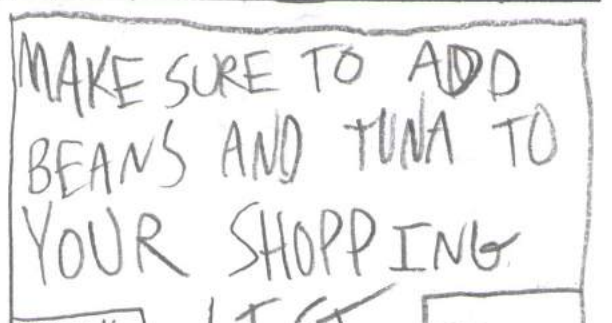 MAKE SURE TO ADD
BEANS AND TUNA TO
YOUR SHOPPING
LIST